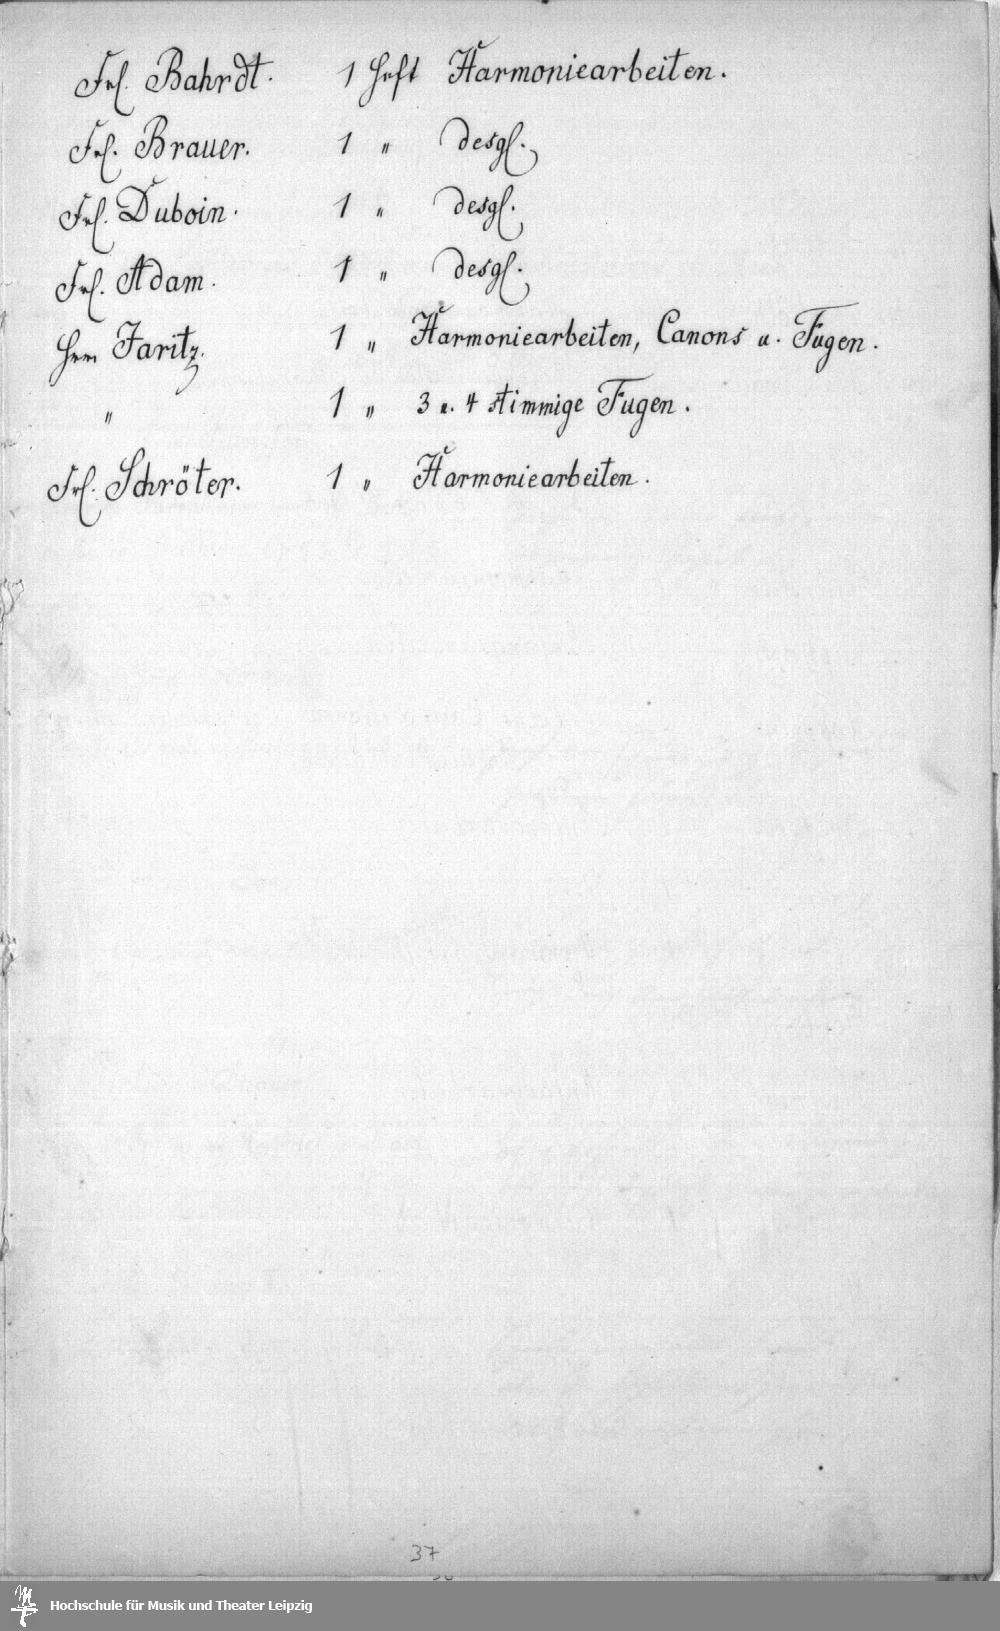 Frl. Bahrdt. 1 Heft Harmoniearbeiten.
Frl. Brauer. 1 " desgl.
Frl. Duboin. 1 " desgl.
Frl. Adam. 1 " desgl.
Herr Jaritz. 1 " Harmoniearbeiten, Canons u. Fugen.
" 1 " 3 u. 4 stimmige Fugen.
Frl. Schröter. 1 " Harmoniearbeiten.
37
Hochschule für Musik und Theater Leipzig